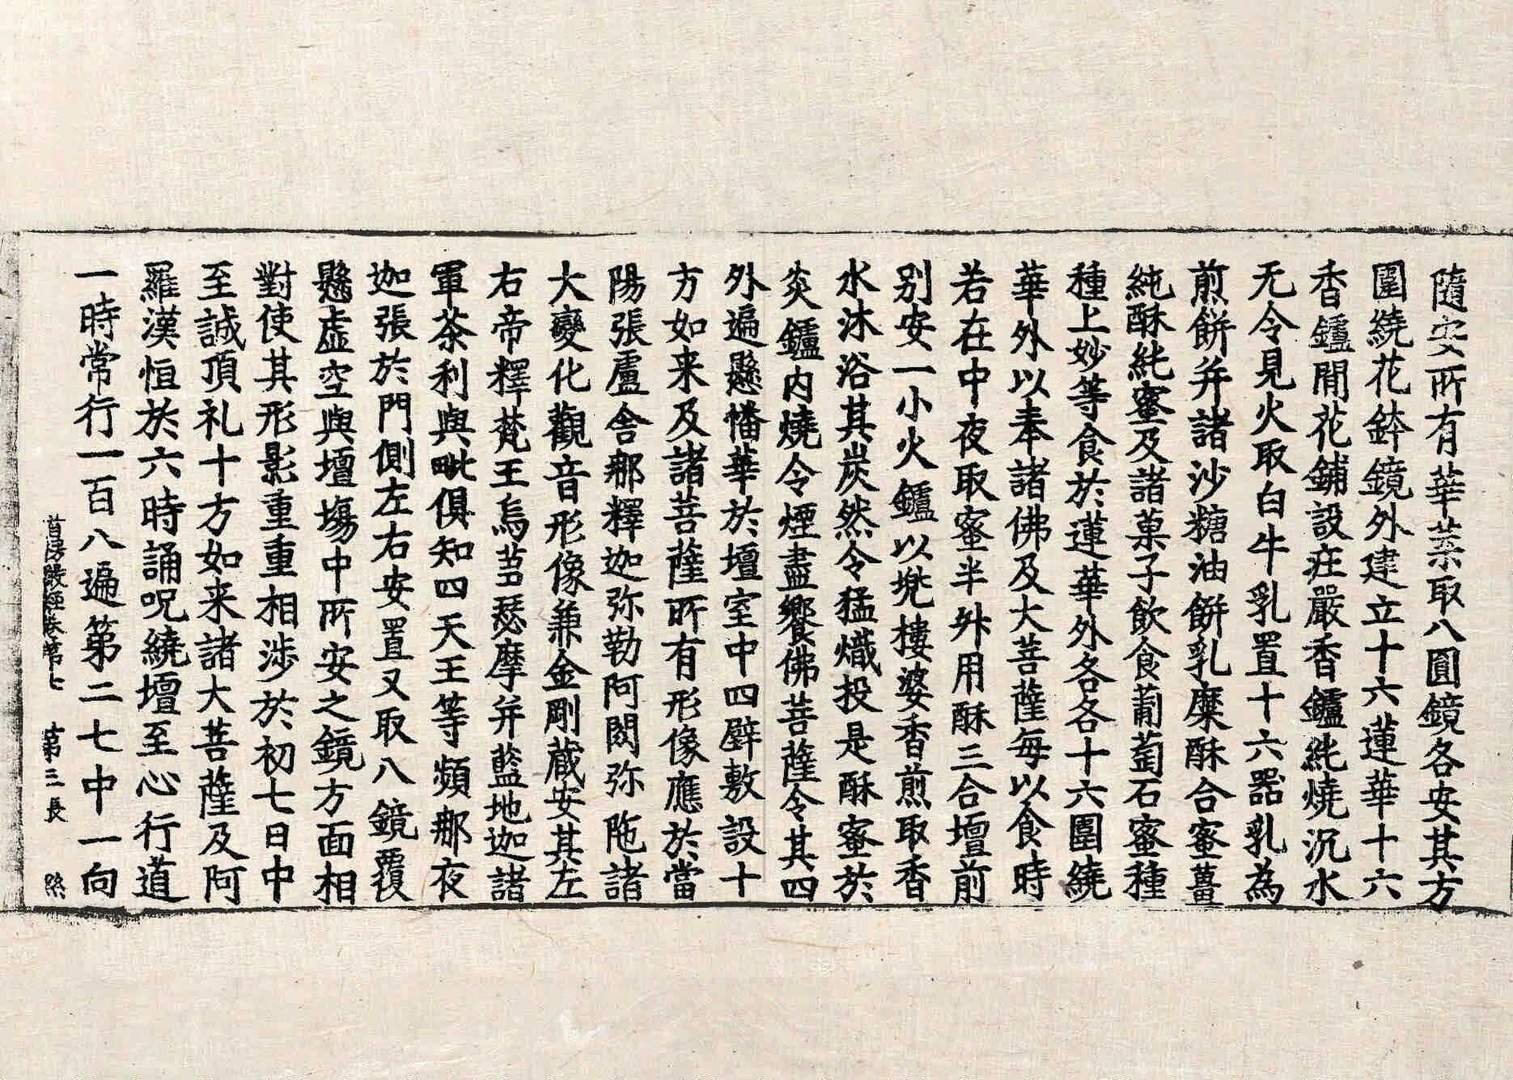 隨安所有華菜取八圓鏡各安其方
圍繞花鉢鏡外建立十六蓮華十六
香鑪閒花鋪設庄嚴香鑪純燒沉水
无令見火取白牛乳置十六器乳為
煎餅并諸沙糖油餅乳糜酥合蜜薑
純酥純蜜及諸菓子飲食葡萄石蜜種
種上妙等食於蓮華外各各十六圍繞
華外以奉諸佛及大菩薩每以食時
若在中夜取蜜半升用酥三合壇前
别安一小火鑪以兠樓婆香煎取香
水沐浴其炭然令猛熾投是酥蜜於
炎鑪内燒令煙盡饗佛菩薩令其四
外遍懸幡華於壇室中四壁敷設十
方如来及諸菩薩所有形像應於當
陽張盧舍那釋迦弥勒阿閦弥陁諸
大變化觀音形像兼金剛藏安其左
右帝釋梵王烏芻瑟摩并藍地迦諸
軍荼利與毗俱知四天王等頻那夜
迦張於門側左右安置又取八鏡覆
懸虛空與壇場中所安之鏡方面相
對使其形影重重相涉於初七日中
至誠頂礼十方如来諸大菩薩及阿
羅漢恒於六時誦呪繞壇至心行道
一時常行一百八遍第二七中一向
首楞嚴經卷第七 第三長